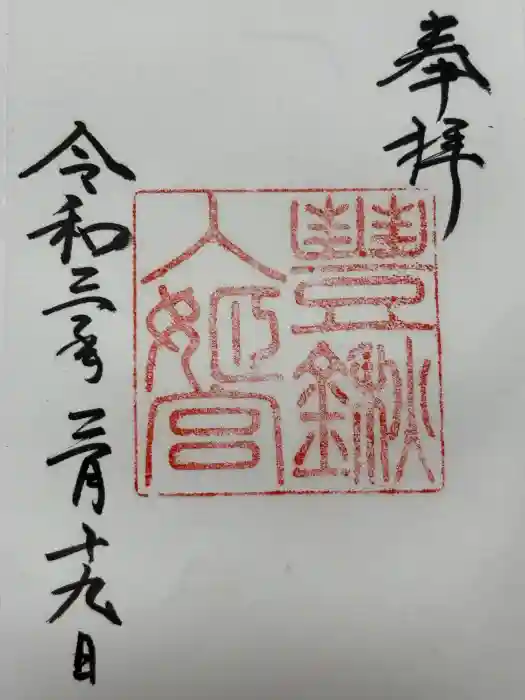 奉拝
豊鍬
入姫宮
令和三年三月十九日